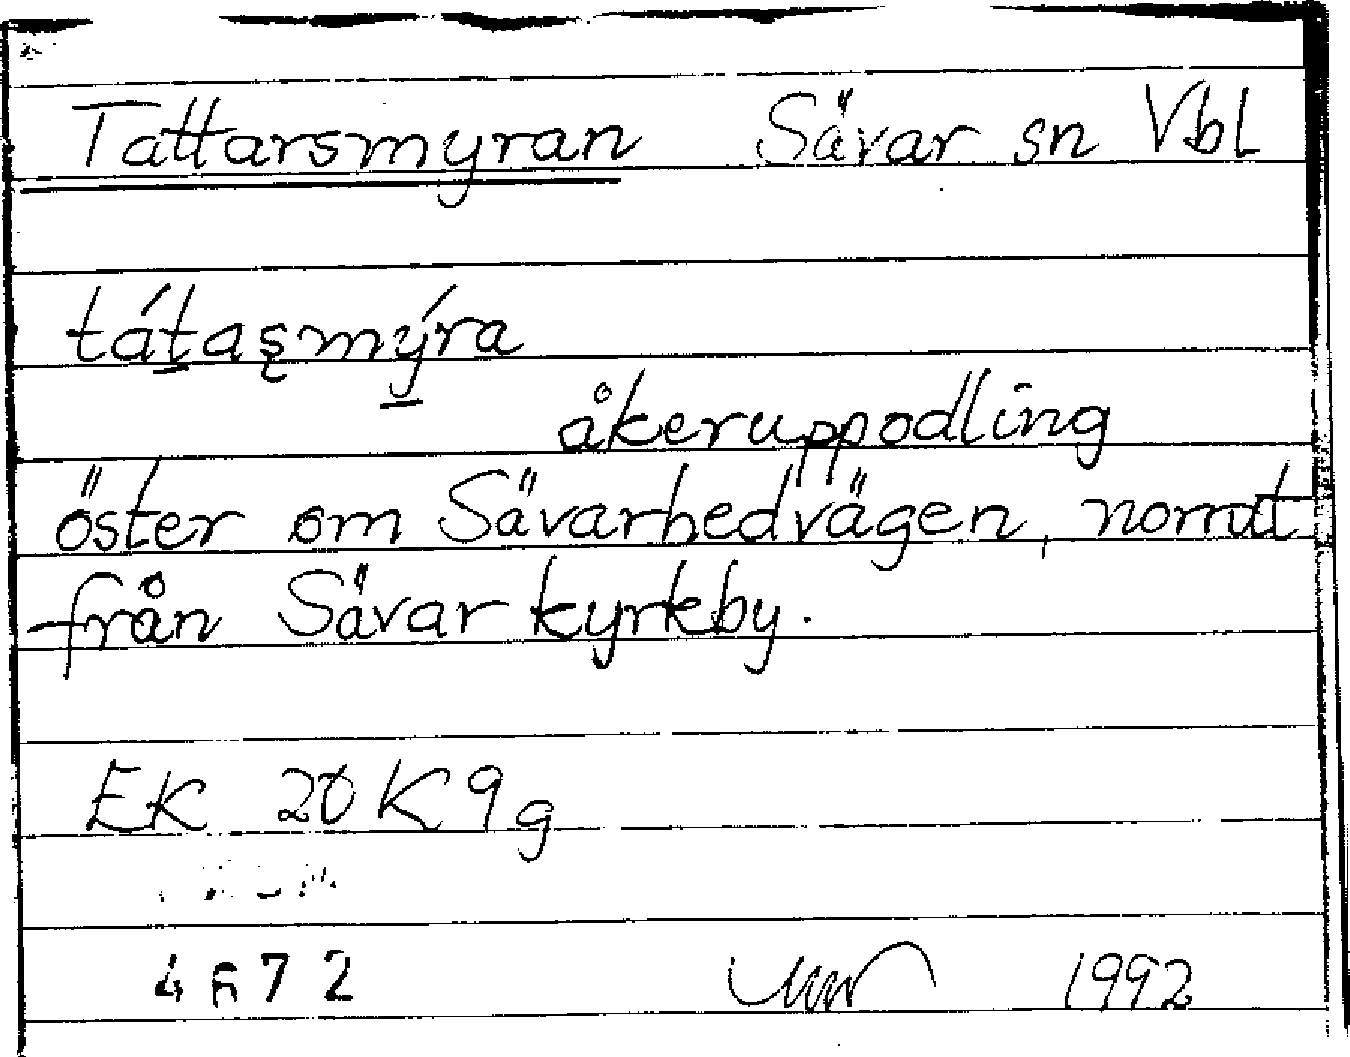 Tattarsmyran Sävar sn Vbl
tátasmýra
åkeruppodling
öster om Sävarhedvägen, norrut
från Sävar kyrkby.
EK 20K 9g
4672
1992